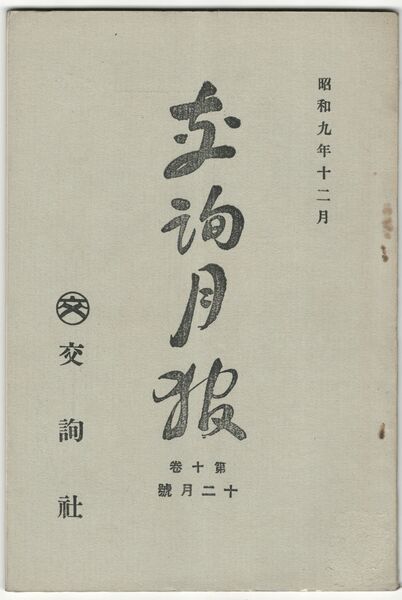 昭和九年十二月
交詢月報
第十卷
十二月號
交
交詢社